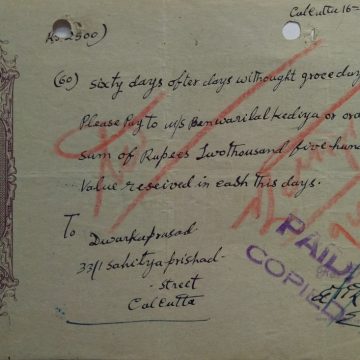 Calcutta 16=
Rs. 2500)
(60) sixty days ofter days withought groce day
Please Pay to M/s Benwarilal kediya or ord
sum of Rupees Twothousand five-hun
Value received in cash This days.
To
Dwarkaprasad
33/1 sahitya-prishad-
-street
Calcutta
PAID
COPIED